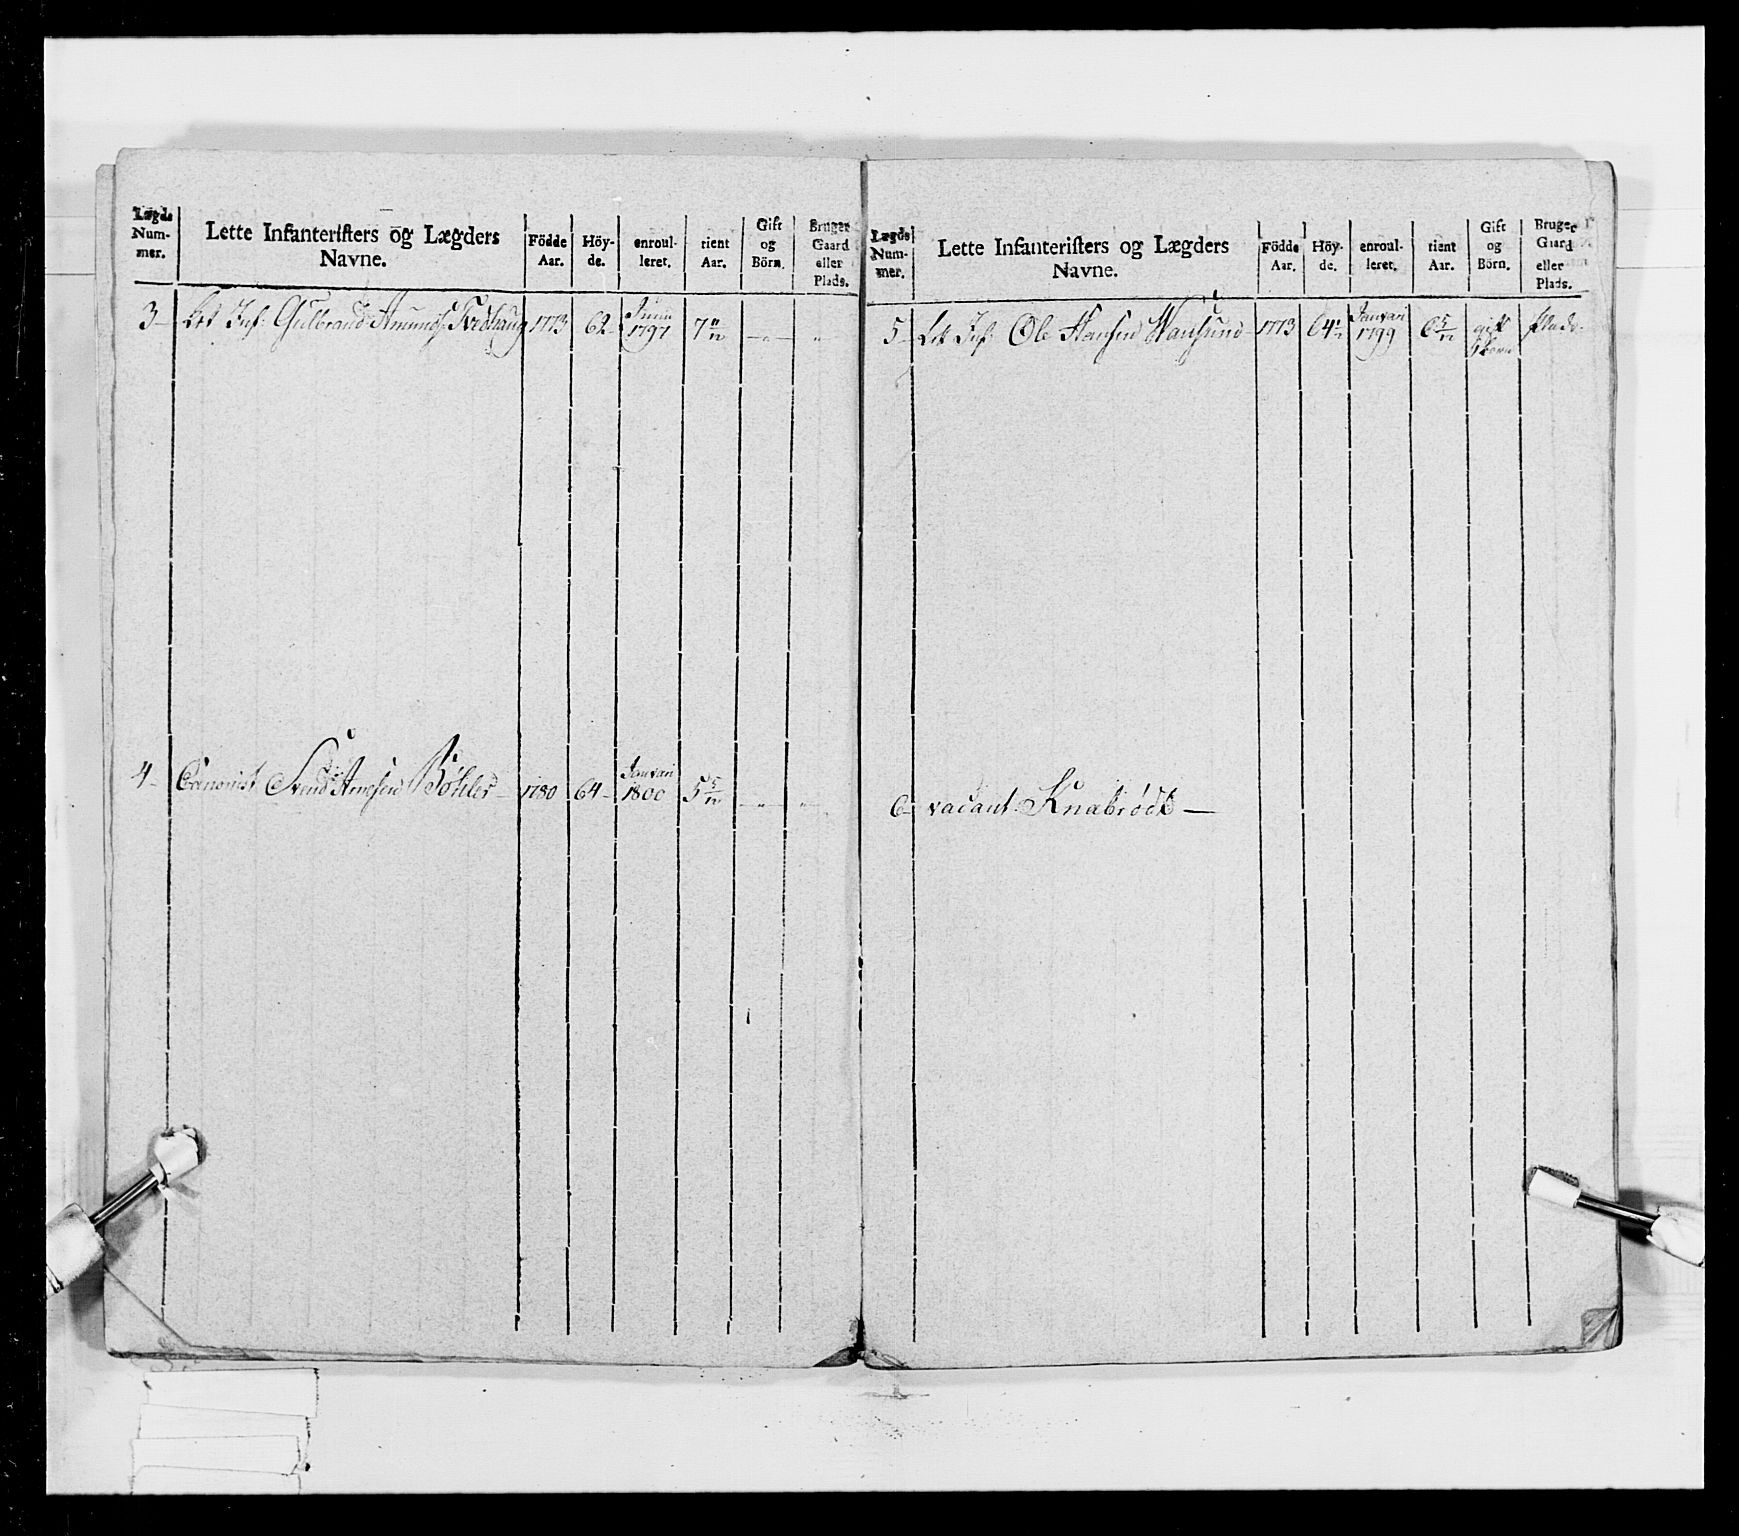 Lægds Num- mer. Lette Infanterisfters og Lægders Navne. Födde Aar. Höy- de. enroul- leret. tient Aar. Gift og Börn. Bruger Gaard eller Plads.
3 Let Inf: Gulbrand Amunds: 1773 62 Junii 1797 7 11/12 — " — "
4 Svend Arnesen Böhler 1780 64 Januari 1800 5 5/12 — " — "
Lægds Num- mer. Lette Infanterisfters og Lægders Navne. Födde Aar. Höy- de. enroul- leret. tient Aar. Gift og Börn. Bruger Gaard eller Plads.
5 Let Inf: Ole Hansen 1773 64 Januari 1799 6 5/12 gift Plads
6 vacant Knabrödt —